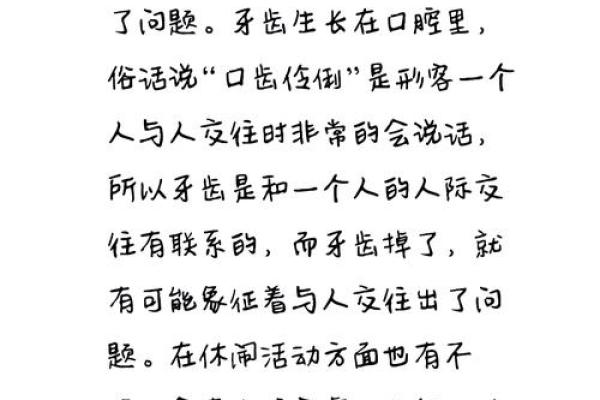 了问题。牙齿生长在口腔里，
俗话说“口齿伶俐”是形容一个
人与人交往时非常的会说话，
所以牙齿是和一个人的人际交
往有联系的，而牙齿掉了，就
有可能象征着与人交往出了问
题。在休闲活动方面也有不